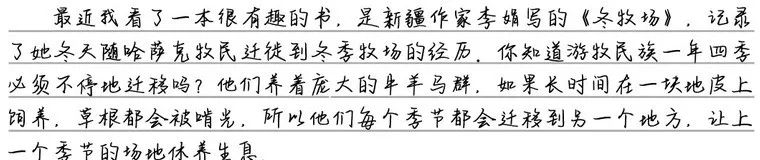 最近我看了一本很有趣的书，是新疆作家李娟写的《冬牧场》，记录
了她冬天随哈萨克牧民迁徙到冬季牧场的经历。你知道游牧民族一年四季
必须不停地迁移吗？他们养着庞大的牛羊马群，如果长时间在一块地皮上
饲养，草根都会被啃光，所以他们每个季节都会迁移到另一个地方，让上
一个季节的场地休养生息。